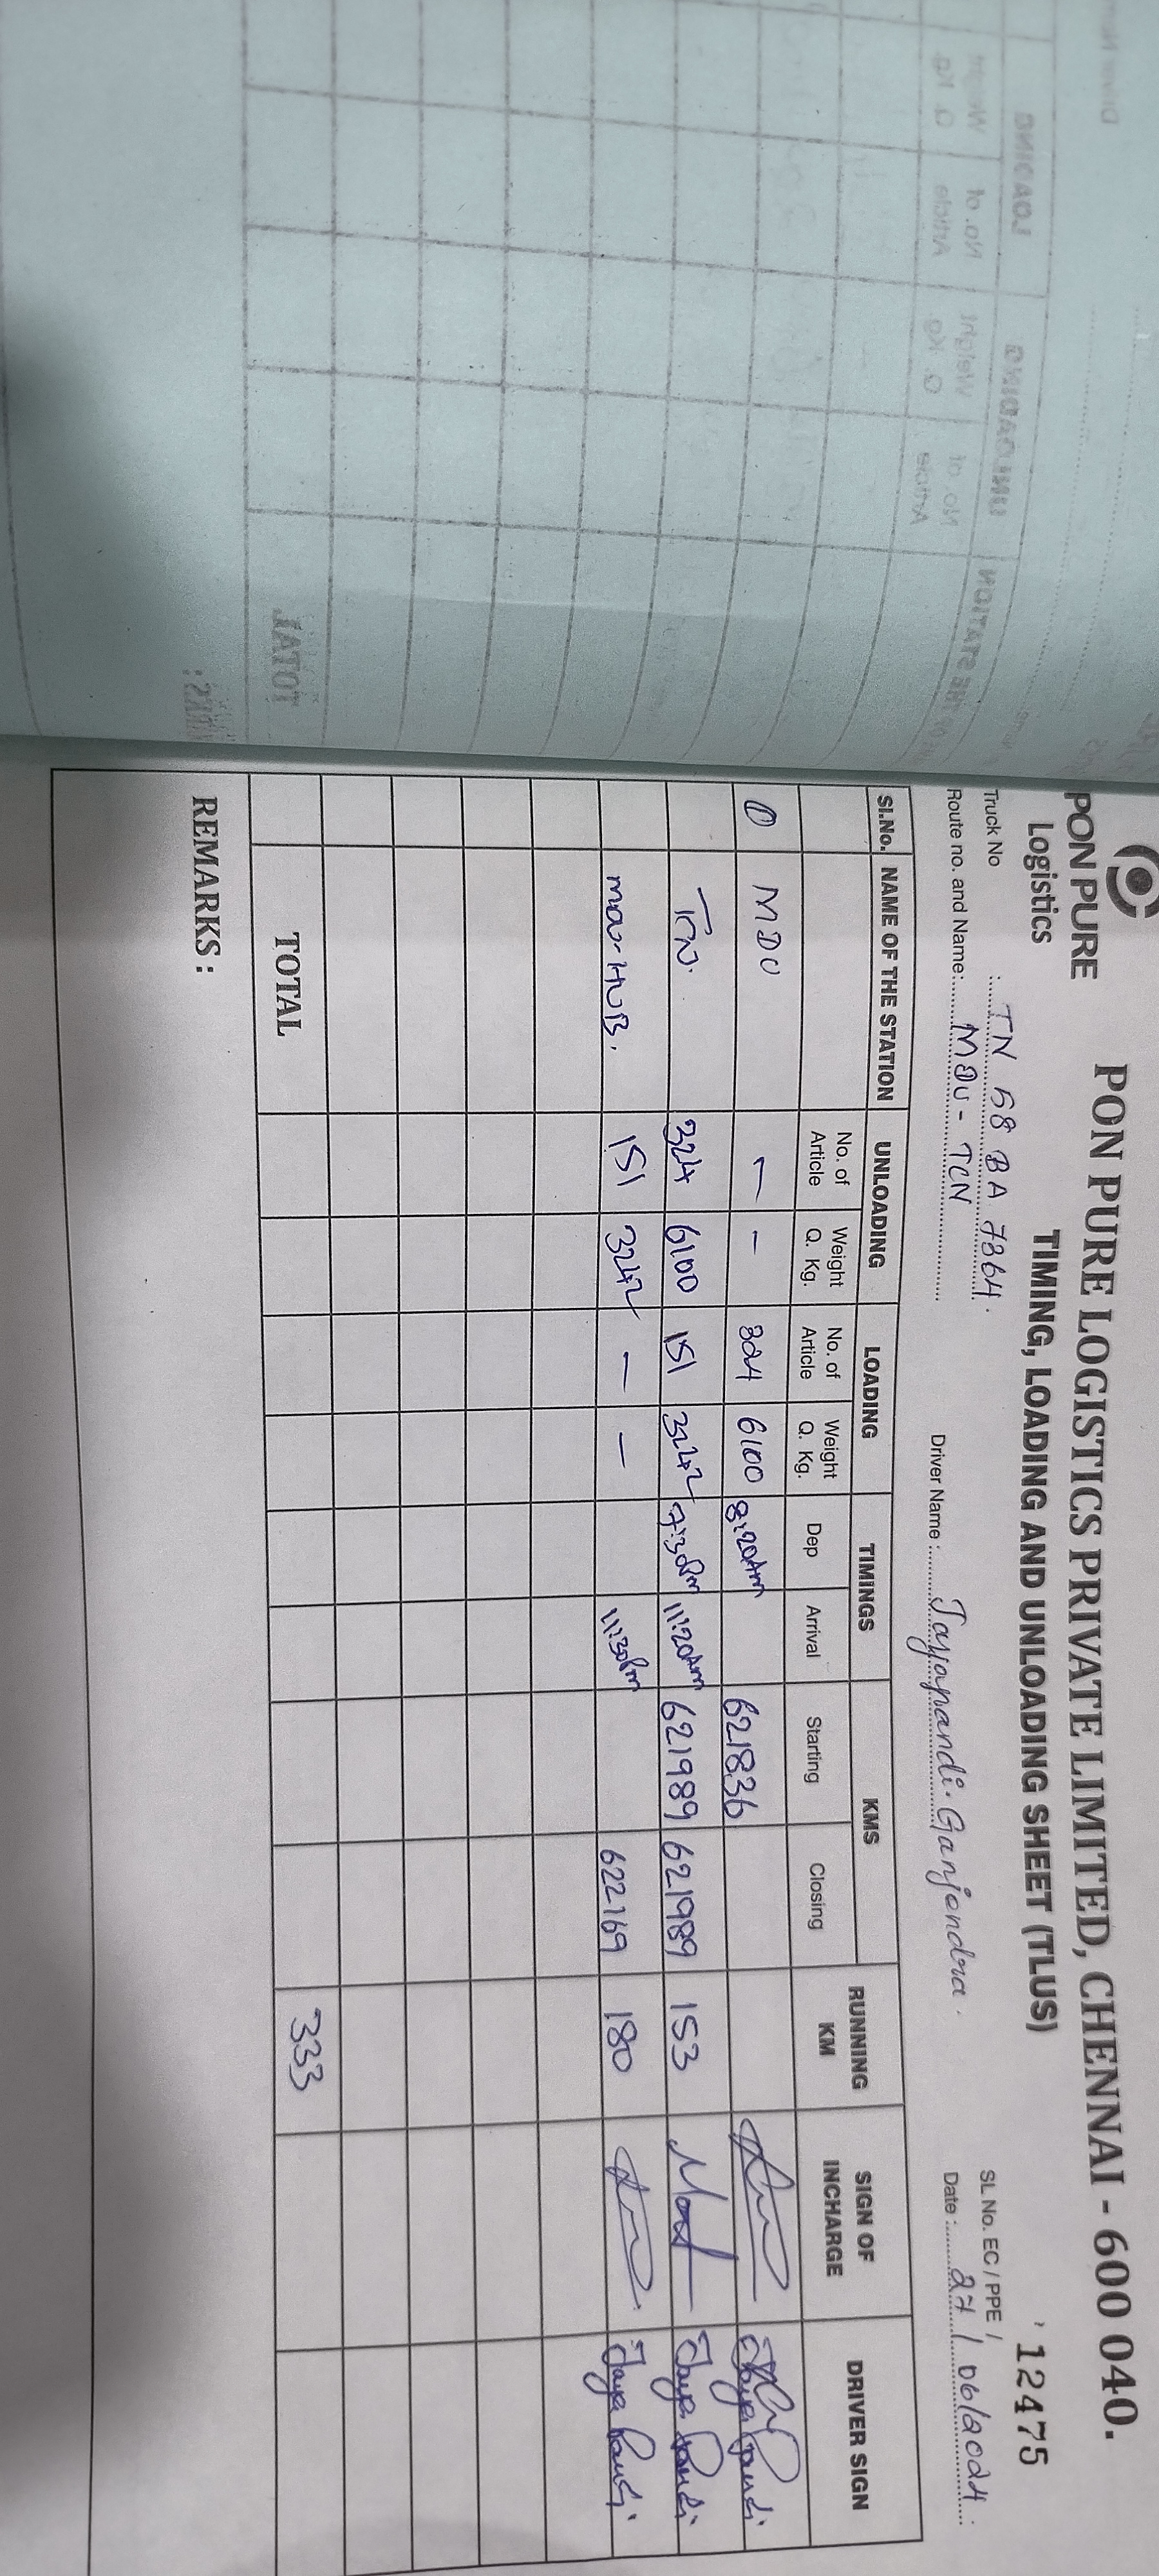 PON PURE LOGISTICS PRIVATE LIMITED, CHENNAI - 600 040.
PON PURE
Logistics
TIMING, LOADING AND UNLOADING SHEET (TLUS)
12475
SL No. EC / PPE /
Truck No : TN 58 BA 7864.
Route no. and Name: MDU - TCN
Driver Name : Jayapandi. Ganjendra.
Date : 27 / 06/2024
SI.No. NAME OF THE STATION UNLOADING LOADING TIMINGS KMS RUNNING KM SIGN OF INCHARGE DRIVER SIGN
No. of Article Weight Q. Kg. No. of Article Weight Q. Kg. Dep Arrival Starting Closing
MDU — — 324 6100 8:20Am 621836
TCN. 324 6100 151 3242 7:30Pm 11:20Am 621989 621989 153
mav HUB. 151 3242 — — 11:30Pm 622169 180
TOTAL 333
REMARKS :
LOADING
UNLOADING
No. of
Article
TOTAL